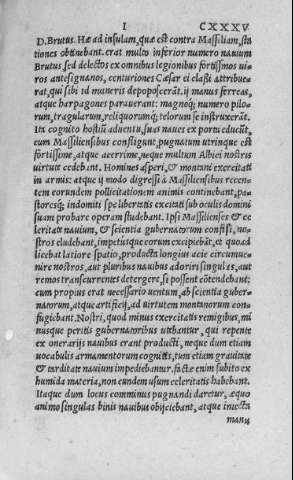 I CXXXV
D. Brutus. Hæ ad insulam, quæ est contra Massiliam, sta
tiones obtinebant. erat multo inferior numero nauium
Brutus sed delectos ex omnibus legionibus fortissimos ui-
ros antesignanos, centuriones Cæsar ei classi attribue-
rat, qui sibi id muneris depoposcerāt. ij manus ferreas,
atque harpagones parauerant: magnoq; numero pilo-
rum, tragularum, reliquorumq; telorum se instruxerāt.
Ita cognito hostiū aduentu, suas naues ex portu educūt,
cum Massiliensibus confligunt, pugnatum utrinque est
fortissime, atque acerrime, neque multum Albici nostris
uirtute cedebant. Homines asperi, & montani exercitati
in armis: atque ij modo digressi à Massiliensibus recen-
tem eorundem pollicitationem animis continebant, pa-
storesq; indomiti spe libertatis excitati sub oculis domini
suam probare operam studebant. Ipsi Massilienses & ce
leritate nauium, & scientia gubernatorum confisi, no-
stros eludebant, impetusque eorum excipiebāt, et quoad
licebat latiore spatio, producta longius acie circumue-
nire nostros, aut pluribus nauibus adoriri singulas, aut
remos transcurrentes detergere, si possent cōtendebant;
cum propius erat necessario uentum, ab scientia guber-
natorum, atque artificijs, ad uirtutem montanorum con-
fugiebant. Nostri, quod minus exercitatis remigibus, mi
nusque peritis gubernatoribus utebantur, qui repente
ex onerarijs nauibus erant producti, neque dum etiam
uocabulis armamentorum cognitis, tum etiam grauitate
& tarditate nauium impediebantur. factæ enim subito ex
humida materia, non eundem usum celeritatis habebant.
Itaque dum locus comminus pugnandi daretur, æquo
animo singulas binis nauibus obijciebant, atque iniecta
manu